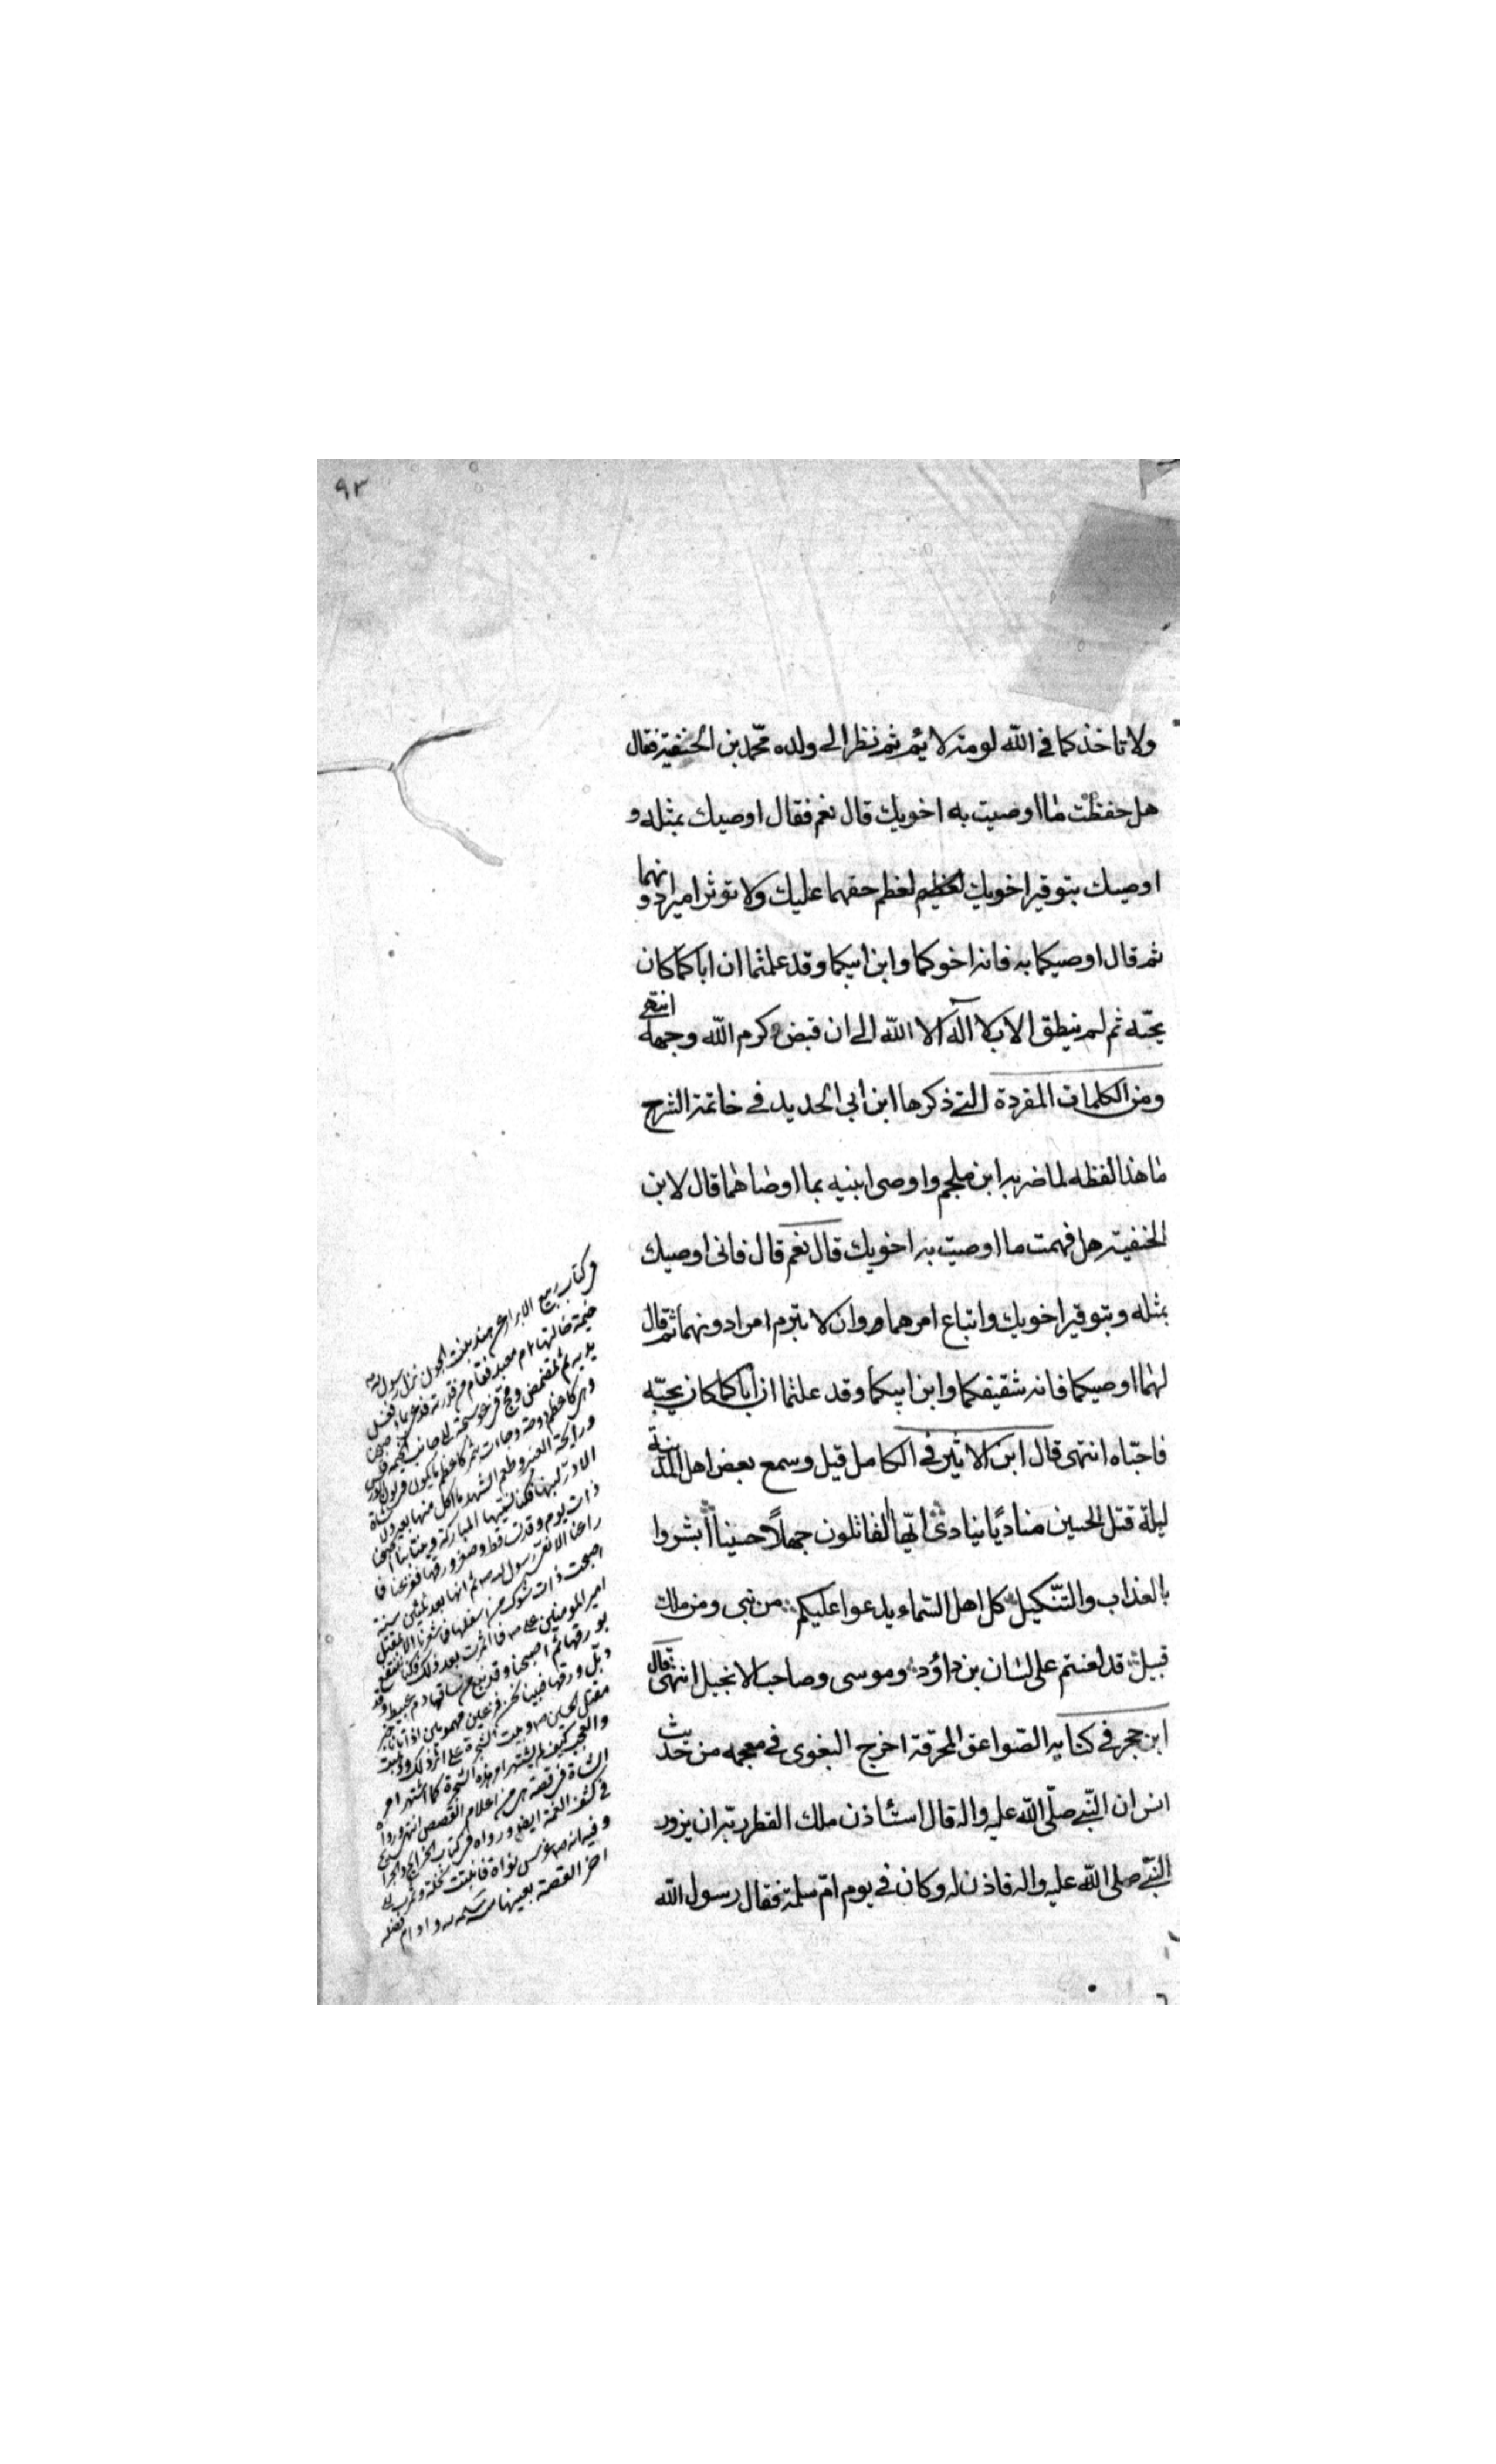 ٩٣
ولا تاخذكما في الله لومة لائم ثم نظر الى ولده محمد بن الحنفية فقال
هل حفظت ما اوصيت به اخويك قال نعم فقال اوصيك بمثله و
اوصيك بتوقير اخويك لعظم حقهما عليك ولا توثر امرا دونهما
ثم قال اوصيكما به فانه اخوكما وابن ابيكما وقد علمتما ان اباكما كان
يحبّه ثم لم ينطق الا بلا اله الا الله الى ان قبض كرم الله وجهه انتهى
ومن الكلمات المفردة التى ذكرها ابن ابي الحديد في خاتمة الشرح
ما هذا لفظه لما ضربه ابن ملجم واوصى ابنيه بما اوصاهما قال لابن
الحنفية هل فهمت ما اوصيت به اخويك قال نعم قال فانى اوصيك
بمثله وبتوقير اخويك واتباع امرهما وان لا تبرم امرا دونهما ثم قال
لهما اوصيكما فانه شقيقكما وابن ابيكما وقد علمتما ان اباكما كان يحبّه
فاحبّاه انتهى قال ابن الاثير في الكامل قيل وسمع بعض اهل المدينة
ليلة قتل الحسين مناديًا ينادى ايّها القاتلون جهلاً حسينا ابشروا
بالعذاب والتّنكيل كل اهل السّماء يدعوا عليكم من نبى ومن ملك
قبيل قد لعنتم على لسان بن داؤد وموسى وصاحب الانجيل انتهى قال
ابن حجر في كتابه الصّواعق المحرقة اخرج البغوى في معجمه من حديث
انس ان النّبى صلّى الله عليه واله قال استأذن ملك القطر ربّه ان يزور
النّبى صلى الله عليه واله فاذن له وكان في يوم امّ سلمة فقال رسول الله
في كتاب ربيع الابرار عن هند بنت الجون نزل رسول الله
خيمة خالتها ام معبد فقام من رقدته فدعى بماء فغسل
يديه ثم تمضمض ومج في عوسجة الى جانب الخيمة
وهى كاعظم دوحة وجاءت بثمر كاعظم ما يكون في لون الورس
ورايحة العنبر وطعم الشهد ما اكل منها
الا درّ لبنها فكنا نسمّيها المباركة
ذات يوم وقد تساقط وصغر ورقها ففزعنا فما
راعنا الا نعى رسول الله ثم انها بعد ثلثين سنة
اصبحت ذات شوك من اسفلها الا بمقتل
امير المومنين على فما اثمرت بعد ذلك فكنا ننتفع
بورقها ثم اصبحنا وقد نبع من ساقها دم عبيط وقد
ذبل ورقها فبينا نحن فزعين مهمومين اذ اتانا خبر
مقتل الحسين ويبست الشجرة على اثر ذلك وذهبت
والعجب كيف لم يشتهر امر هذه الشجرة كما اشتهر امر
الشاة في قصة هى من اعلام القصص انتهى
في كشف الغمة ايضا ورواه في كتاب الخرائج
وفيه انه غرس نواة فانبتت نخلة
اخر القصة بعينها